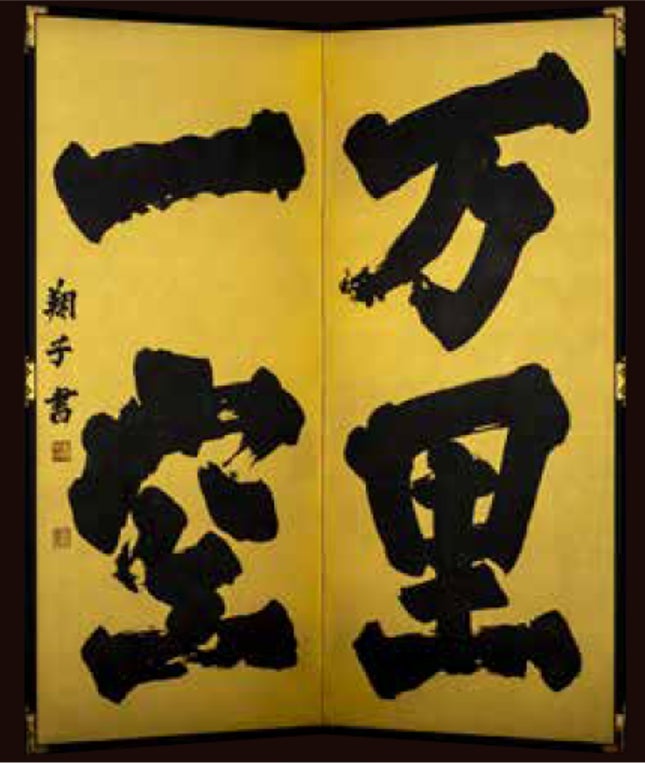 万里
一空
翔子書